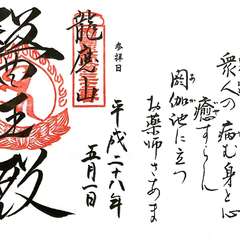 衆人の病む身と心
癒すらん
閼伽池に立つ
お薬師さあま
参拝日
平成二十八年
五月一日
龍應山
醫王殿